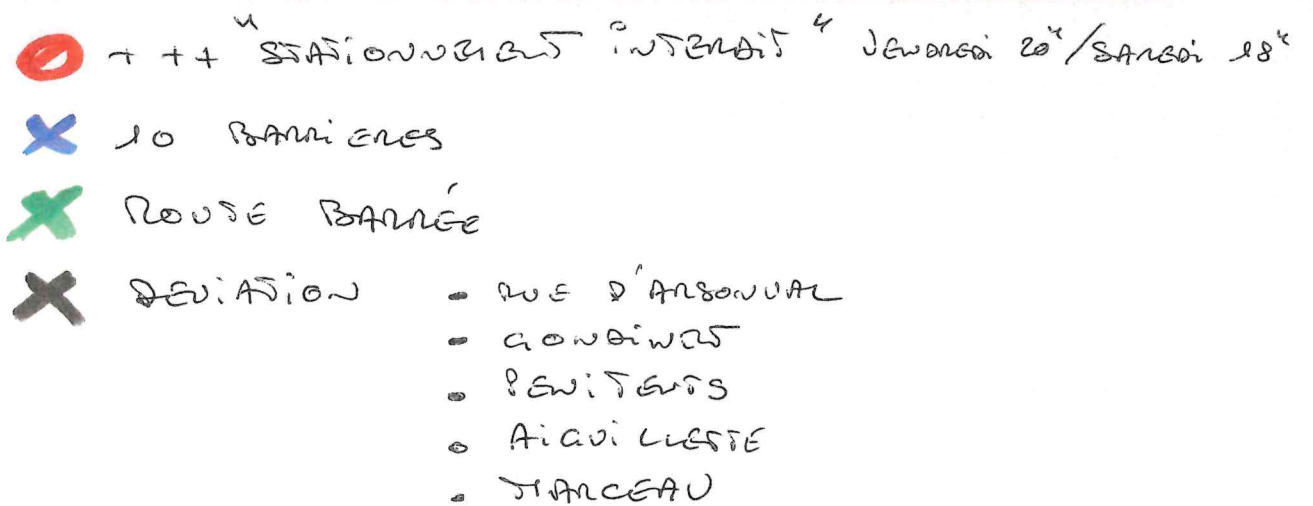 + ++ "STATIONNEMENT INTERDIT" VENDREDI 20H/SAMEDI 18H
10 BARRIERES
ROUTE BARRÉE
DEVIATION - RUE D'ARSONVAL
- GONDINET
- PENITENTS
- AIGUILLETTE
- MARCEAU